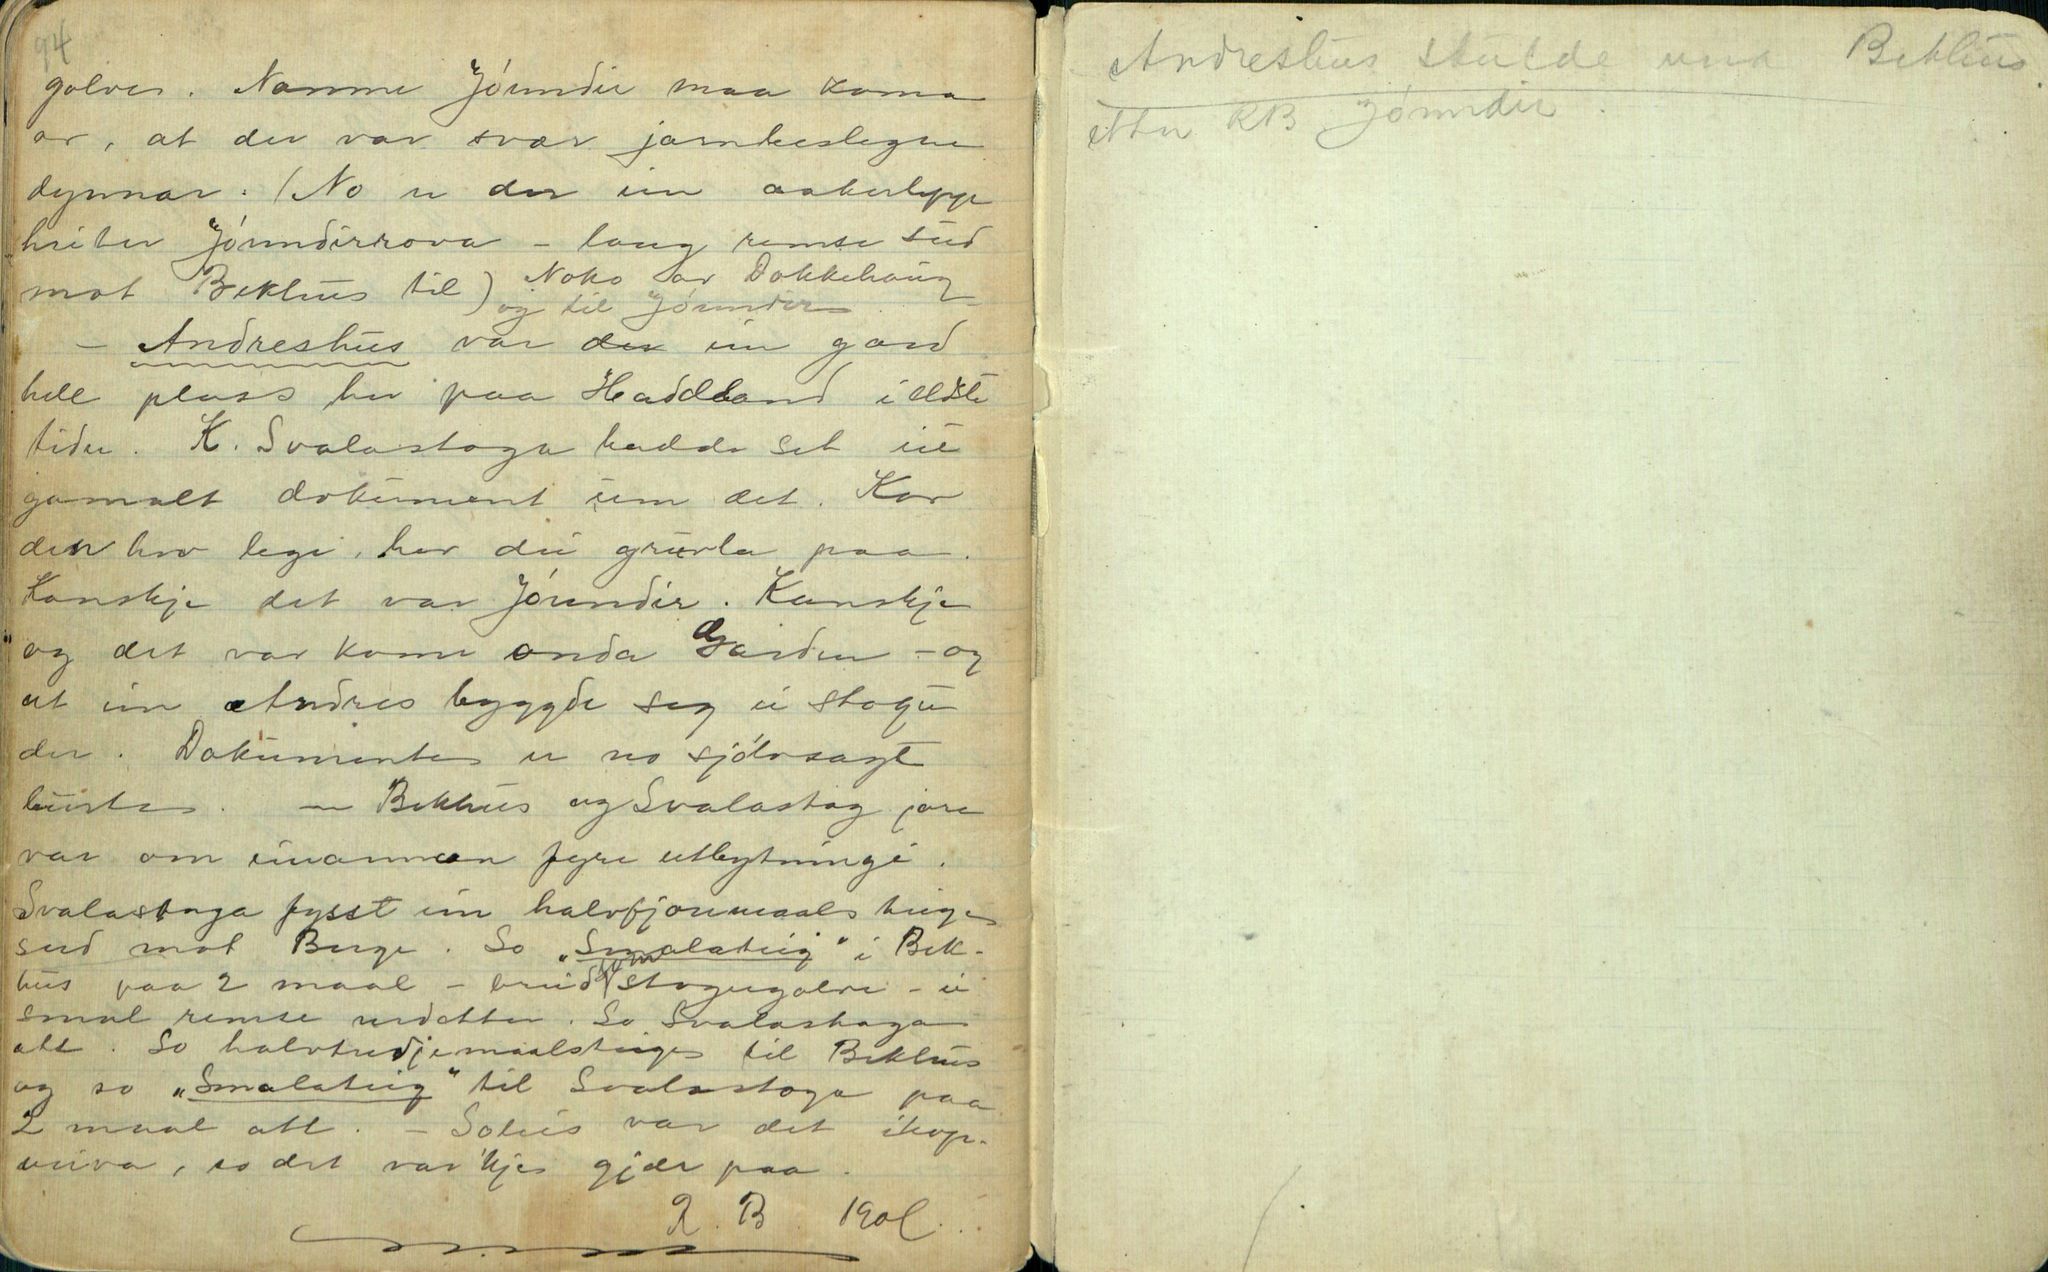 94
golver. Namne Jórundir maa koma
or, at der var svær jarnbeslegne
dynnar. (No er der ein aakerlepp
heiter Jórundirrova – lang remse sud
mot Bekhus til) Noko av Dokkehaug
og til Jórundir
– Andreshus var der ein gard
hell plass her paa Haddland i eldste
tider. K. Svalastoga hadde set eit
gamalt dokument um det. Kor
den hev legi, her dei grurla paa.
Kanskje det var Jórundir. Kanskje
og det var kome onda Garden – og
at ein Andres bygde seg ei stogu
der. Dokumente er no sjólvsagt
burte. – Bekhus og Svalastog jore
var om einannan fyre utbytningi.
Svalastoga fysst ein halvfjoremaals teige
sud mot Berge. So „Smalateig" i Bek-
hus paa 2 maal – breid som stogugolve – ei
smal remse nedetter. So Svalastoga
att. So halvtredjemaalsteige til Bekhus
og so „Smalateig" til Svalastoga paa
2 maal att. – Soleis var det ihop-
veiva, so det var 'kje gjær paa.
R. B. 190
Andreshus skulde vera Bekhus.
etter RB Jórundir.